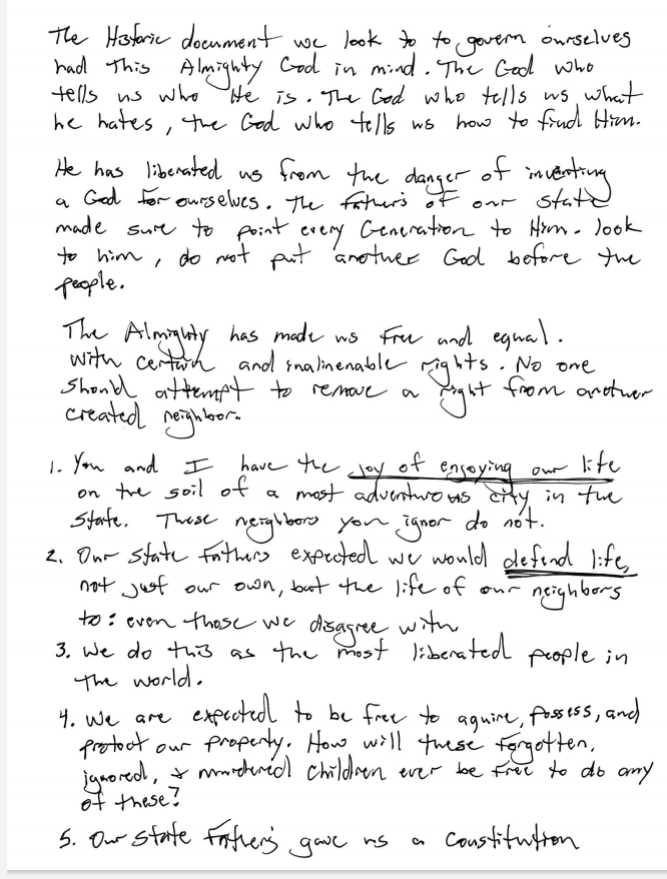 The Historic document we look to to govern ourselves
had This Almighty God in mind. The God who
tells us who He is. The God who tells us what
he hates, the God who tells us how to find Him.
He has liberated us from the danger of inventing
a God for ourselves. The father's of our state
made sure to point every Generation to Him. look
to him, do not put another God before the
people.
The Almighty has made us free and equal.
With certain and inalienable rights. No one
Should attempt to remove a right from another
created neighbor.
1. You and I have the joy of enjoying our life
on the soil of a most adventurous city in the
State. These neighbors you ignor do not.
2. Our State Fathers expected we would defend life,
not just our own, but the life of our neighbors
to: even those we disagree with
3. We do this as the most liberated people in
the world.
4. We are expected to be free to aquire, possess, and
protect our property. How will these forgotten,
ignored, & murdered children ever be free to do any
of these?
5. Our State Father's gave us a Constitution